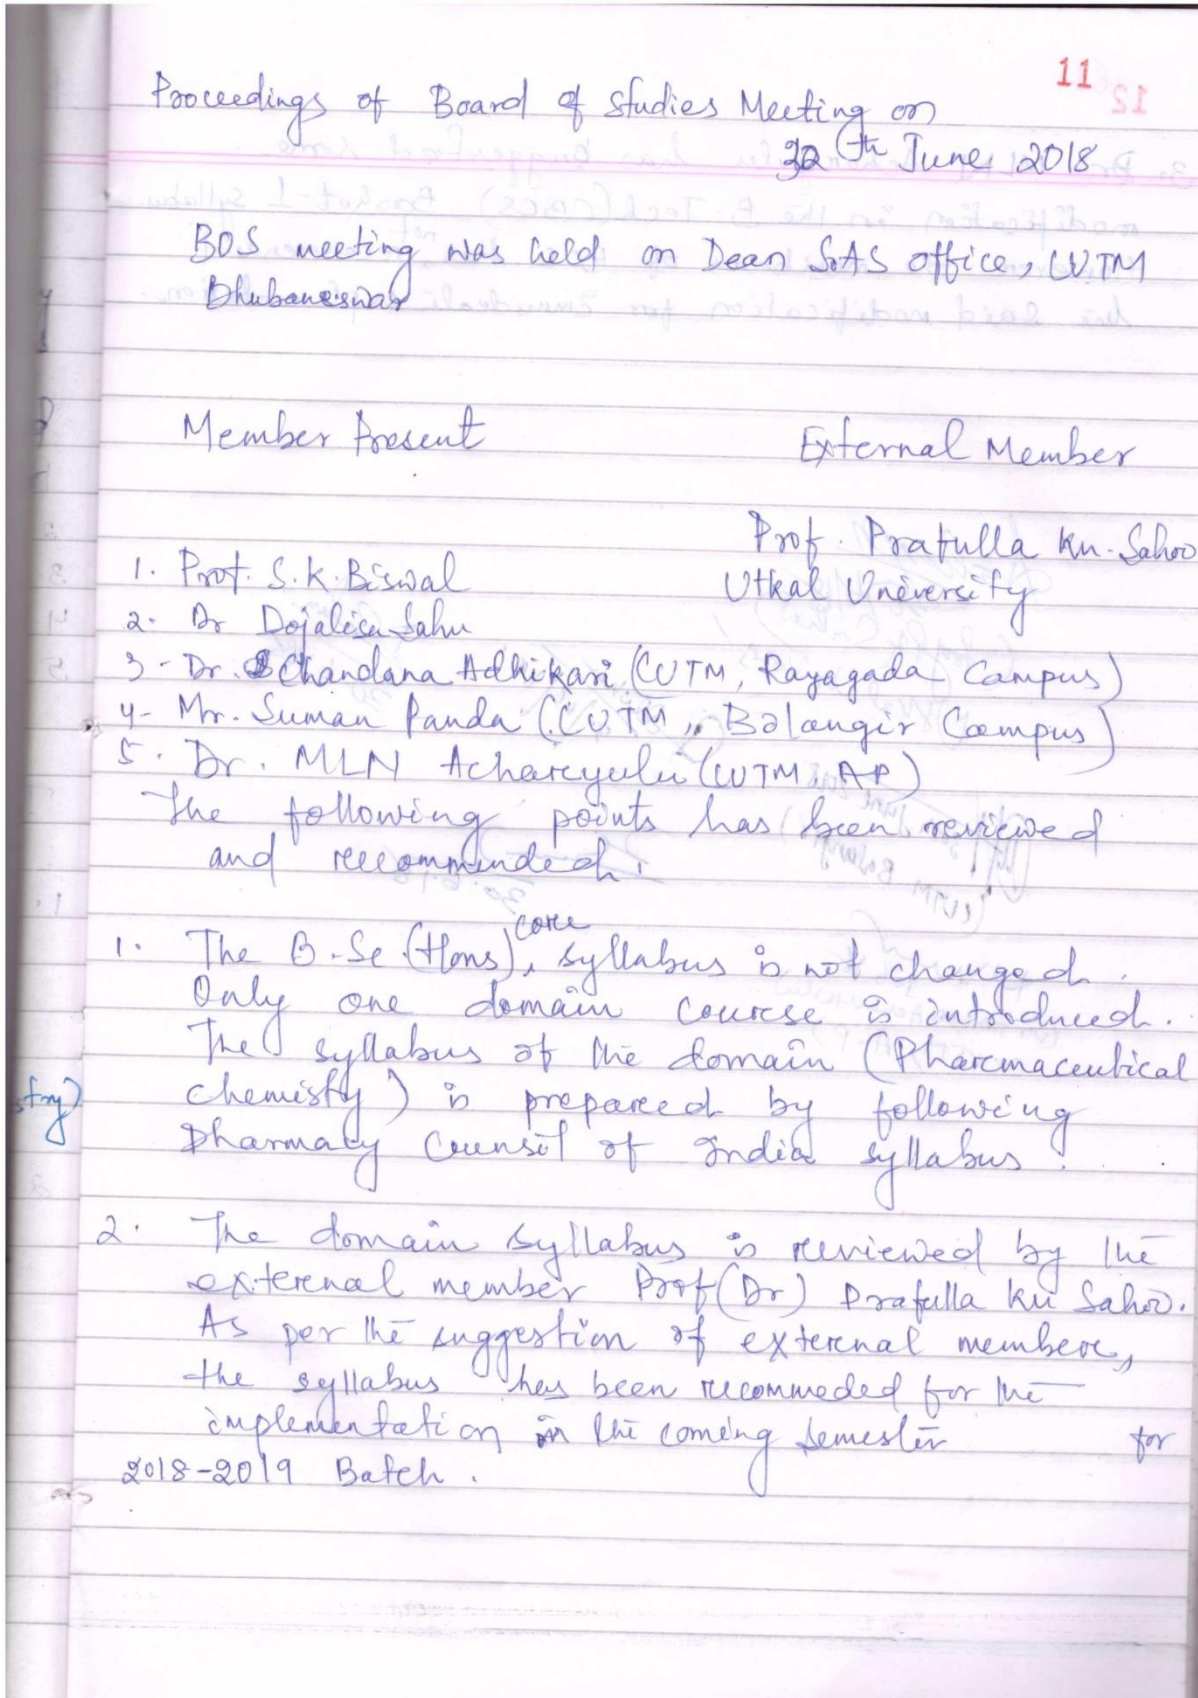 11
Proceedings of Board of Studies Meeting on
30th June 2018
BOS meeting was held on Dean SoAS office, CUTM
Bhubaneswar
Member Present
External Member
Prof. Prafulla Ku. Sahoo
Utkal University
1. Prof. S.K. Biswal
2. Dr Dojalisa Sahu
3- Dr. Chandana Adhikari (CUTM, Rayagada Campus)
4- Mr. Suman Panda (CUTM, Balangir Campus)
5. Dr. MLN Acharyulu (CUTM AP)
The following points has been reviewed
and recommended.
1. The B.Sc (Hons) core syllabus is not changed.
Only one domain course is introduced.
The syllabus of the domain (Pharmaceutical
Chemisty) is prepared by following
Pharmacy Counsil of India syllabus.
stry)
2. The domain syllabus is reviewed by the
external member Prof (Dr) Prafulla Ku Sahoo.
As per the suggestion of external member,
the syllabus has been recommeded for the
implementation in the coming semester for
2018-2019 Batch.